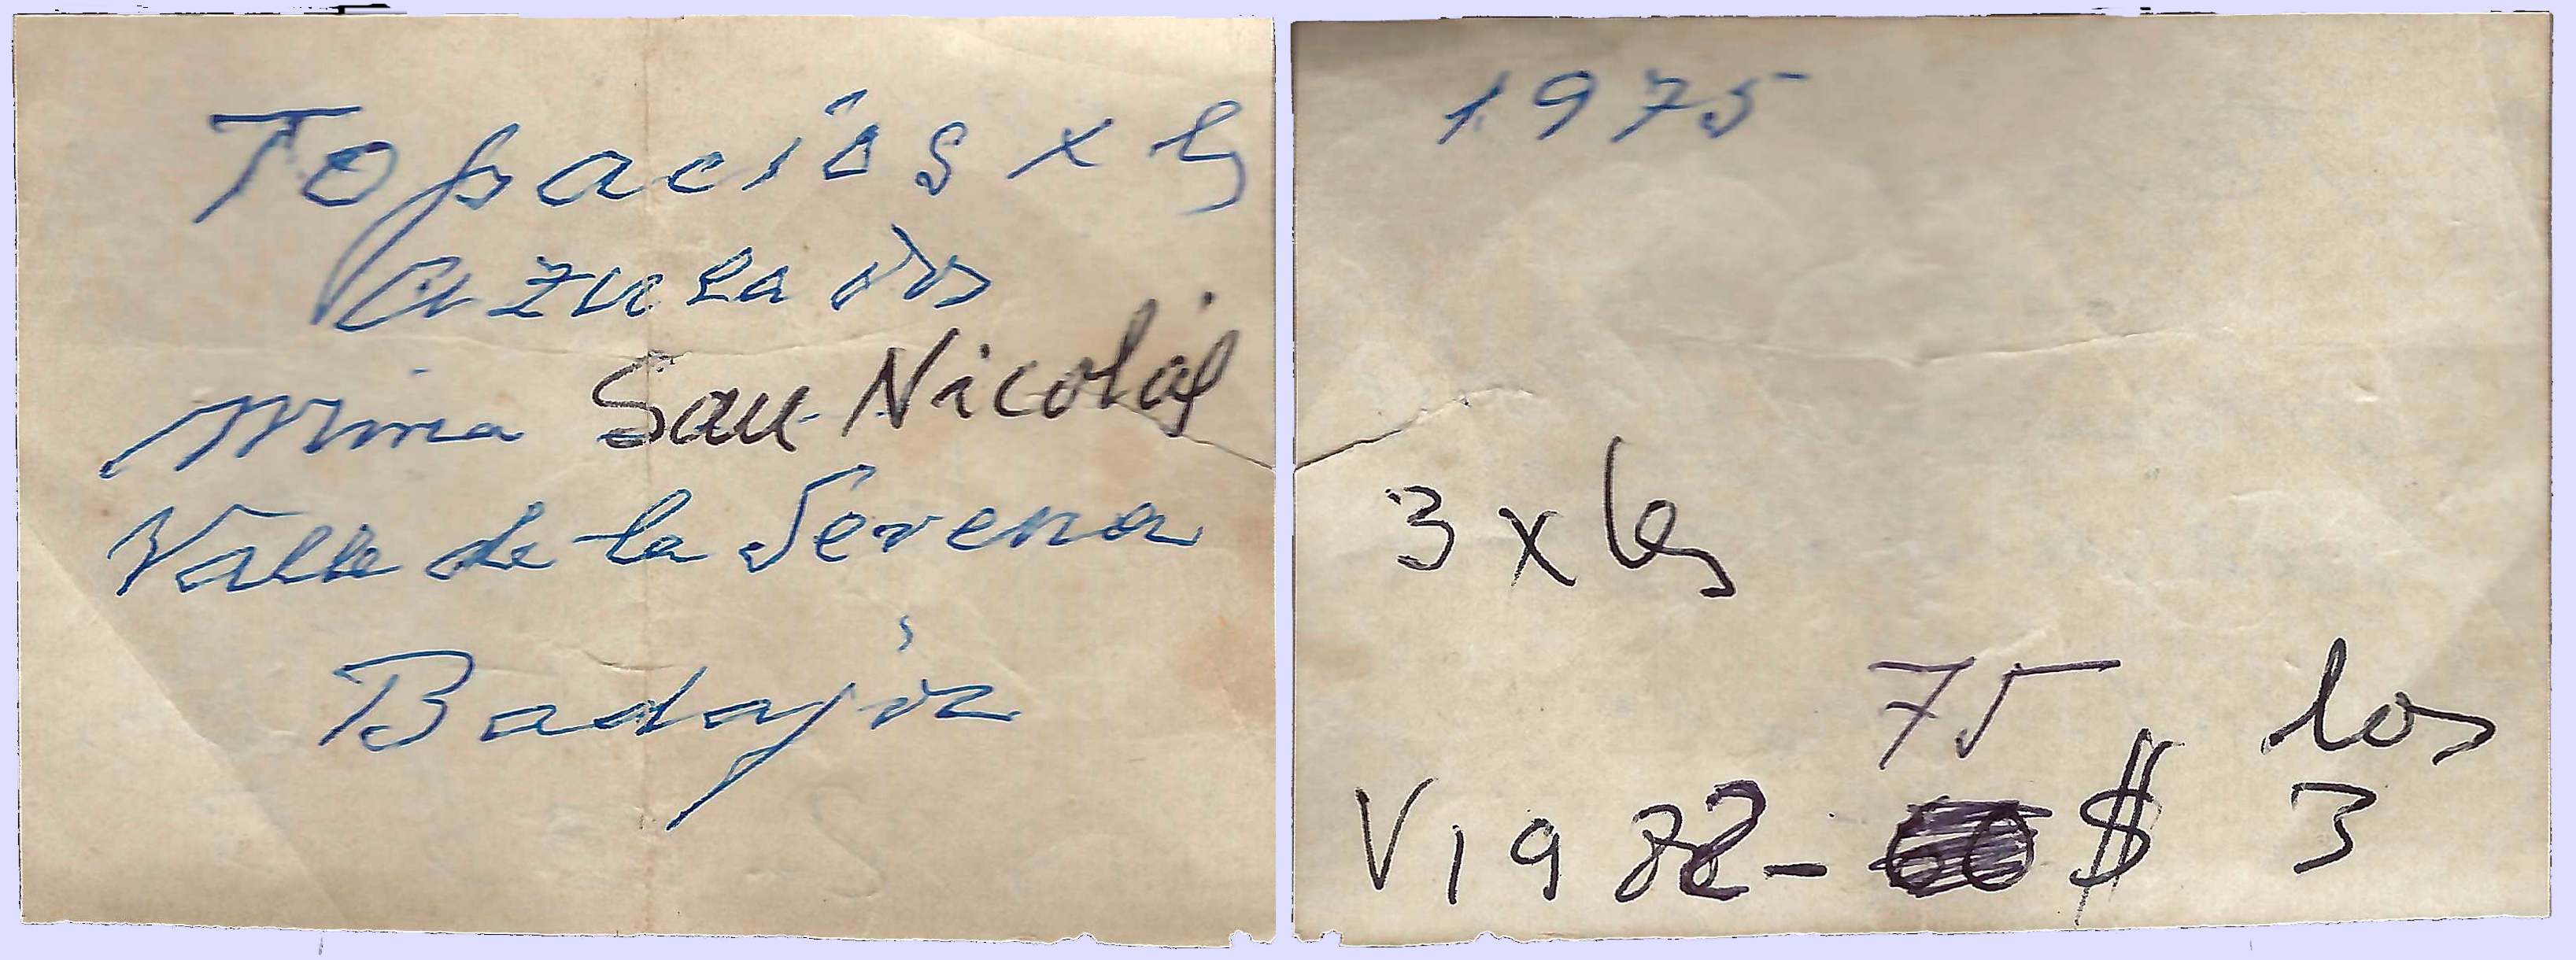 Topacios x ls
azulados
Mina San Nicolás
Valle de la Serena
Badajoz
1975
3 x ls
75 los
V1982- $ 3